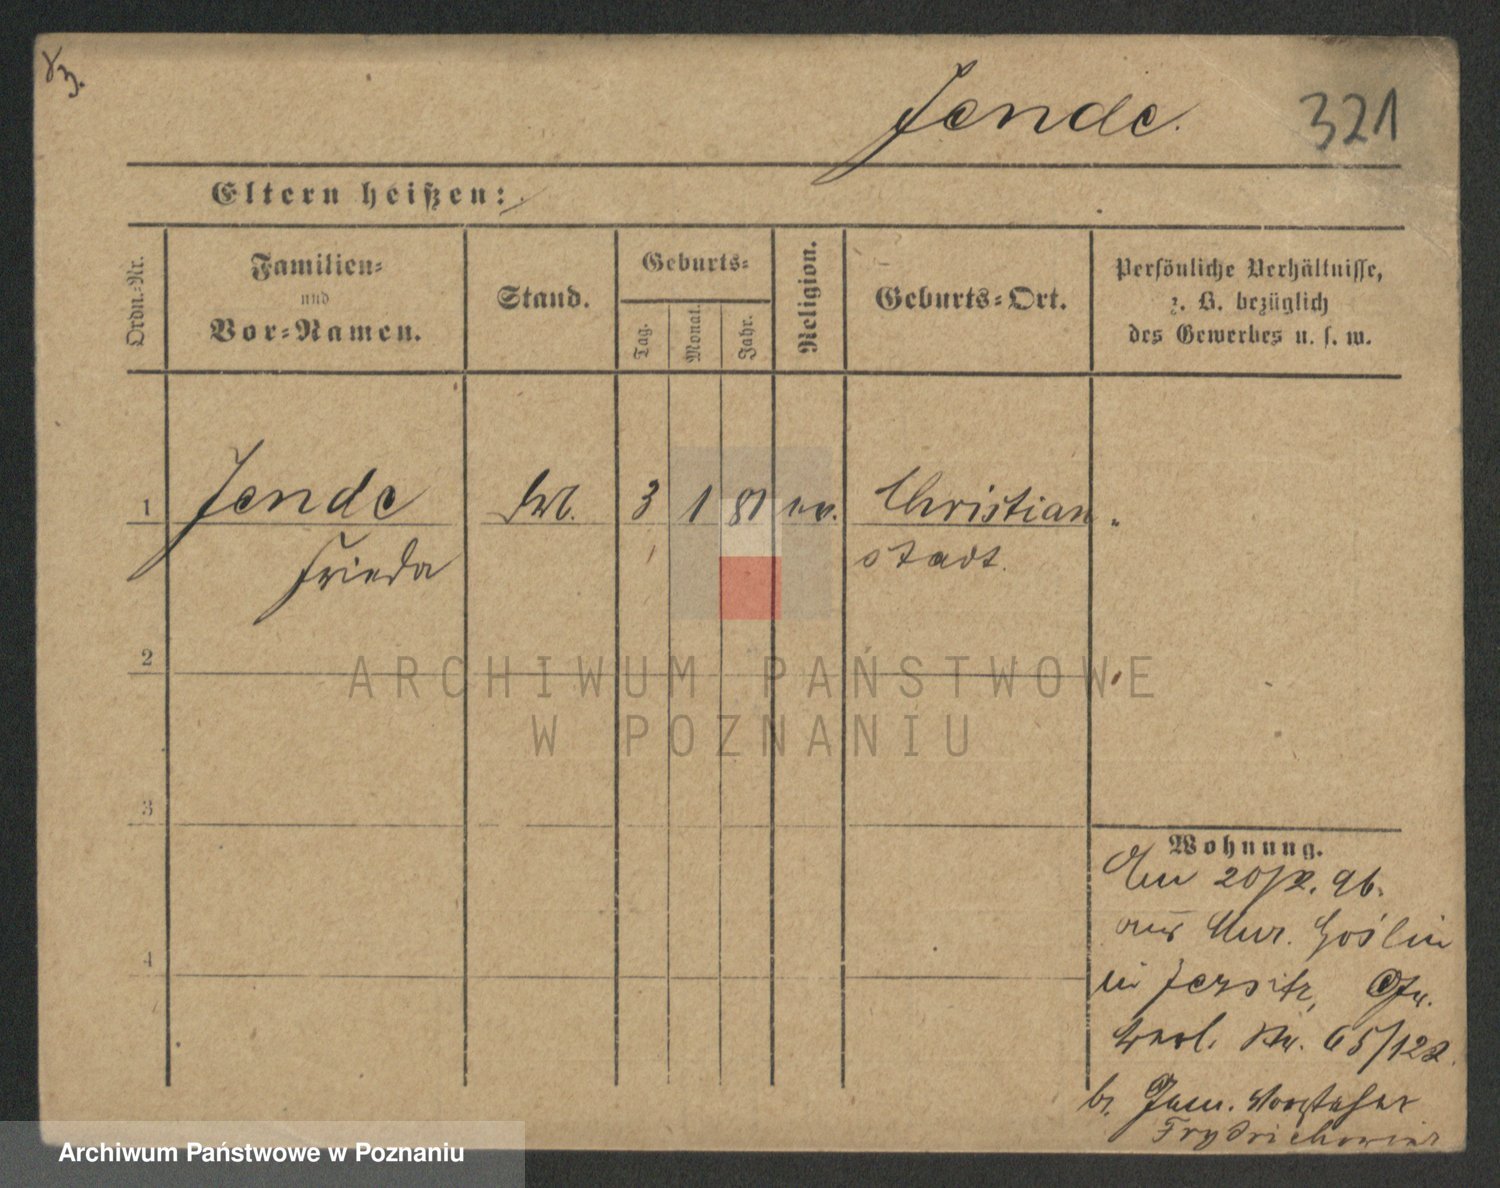 Jende.
321
Eltern heißen:
Ordn.-Nr.
Familien-
und
Vor-Namen.
Stand.
Geburts-
Tag.
Monat.
Jahr.
Religion.
Geburts-Ort.
Persönliche Verhältnisse,
z. B. bezüglich
des Gewerbes u. s. w.
1 Jende 3 1 81 ev. Christian-
Frieda stadt.
2
ARCHIWUM PAŃSTWOWE
W POZNANIU
3
Wohnung.
20/2. 96.
aus Mur. Goślin
4
in Jersitz,
Nr. 65/122
b. Gem. Vorsteher
Frydrichowicz
Archiwum Państwowe w Poznaniu